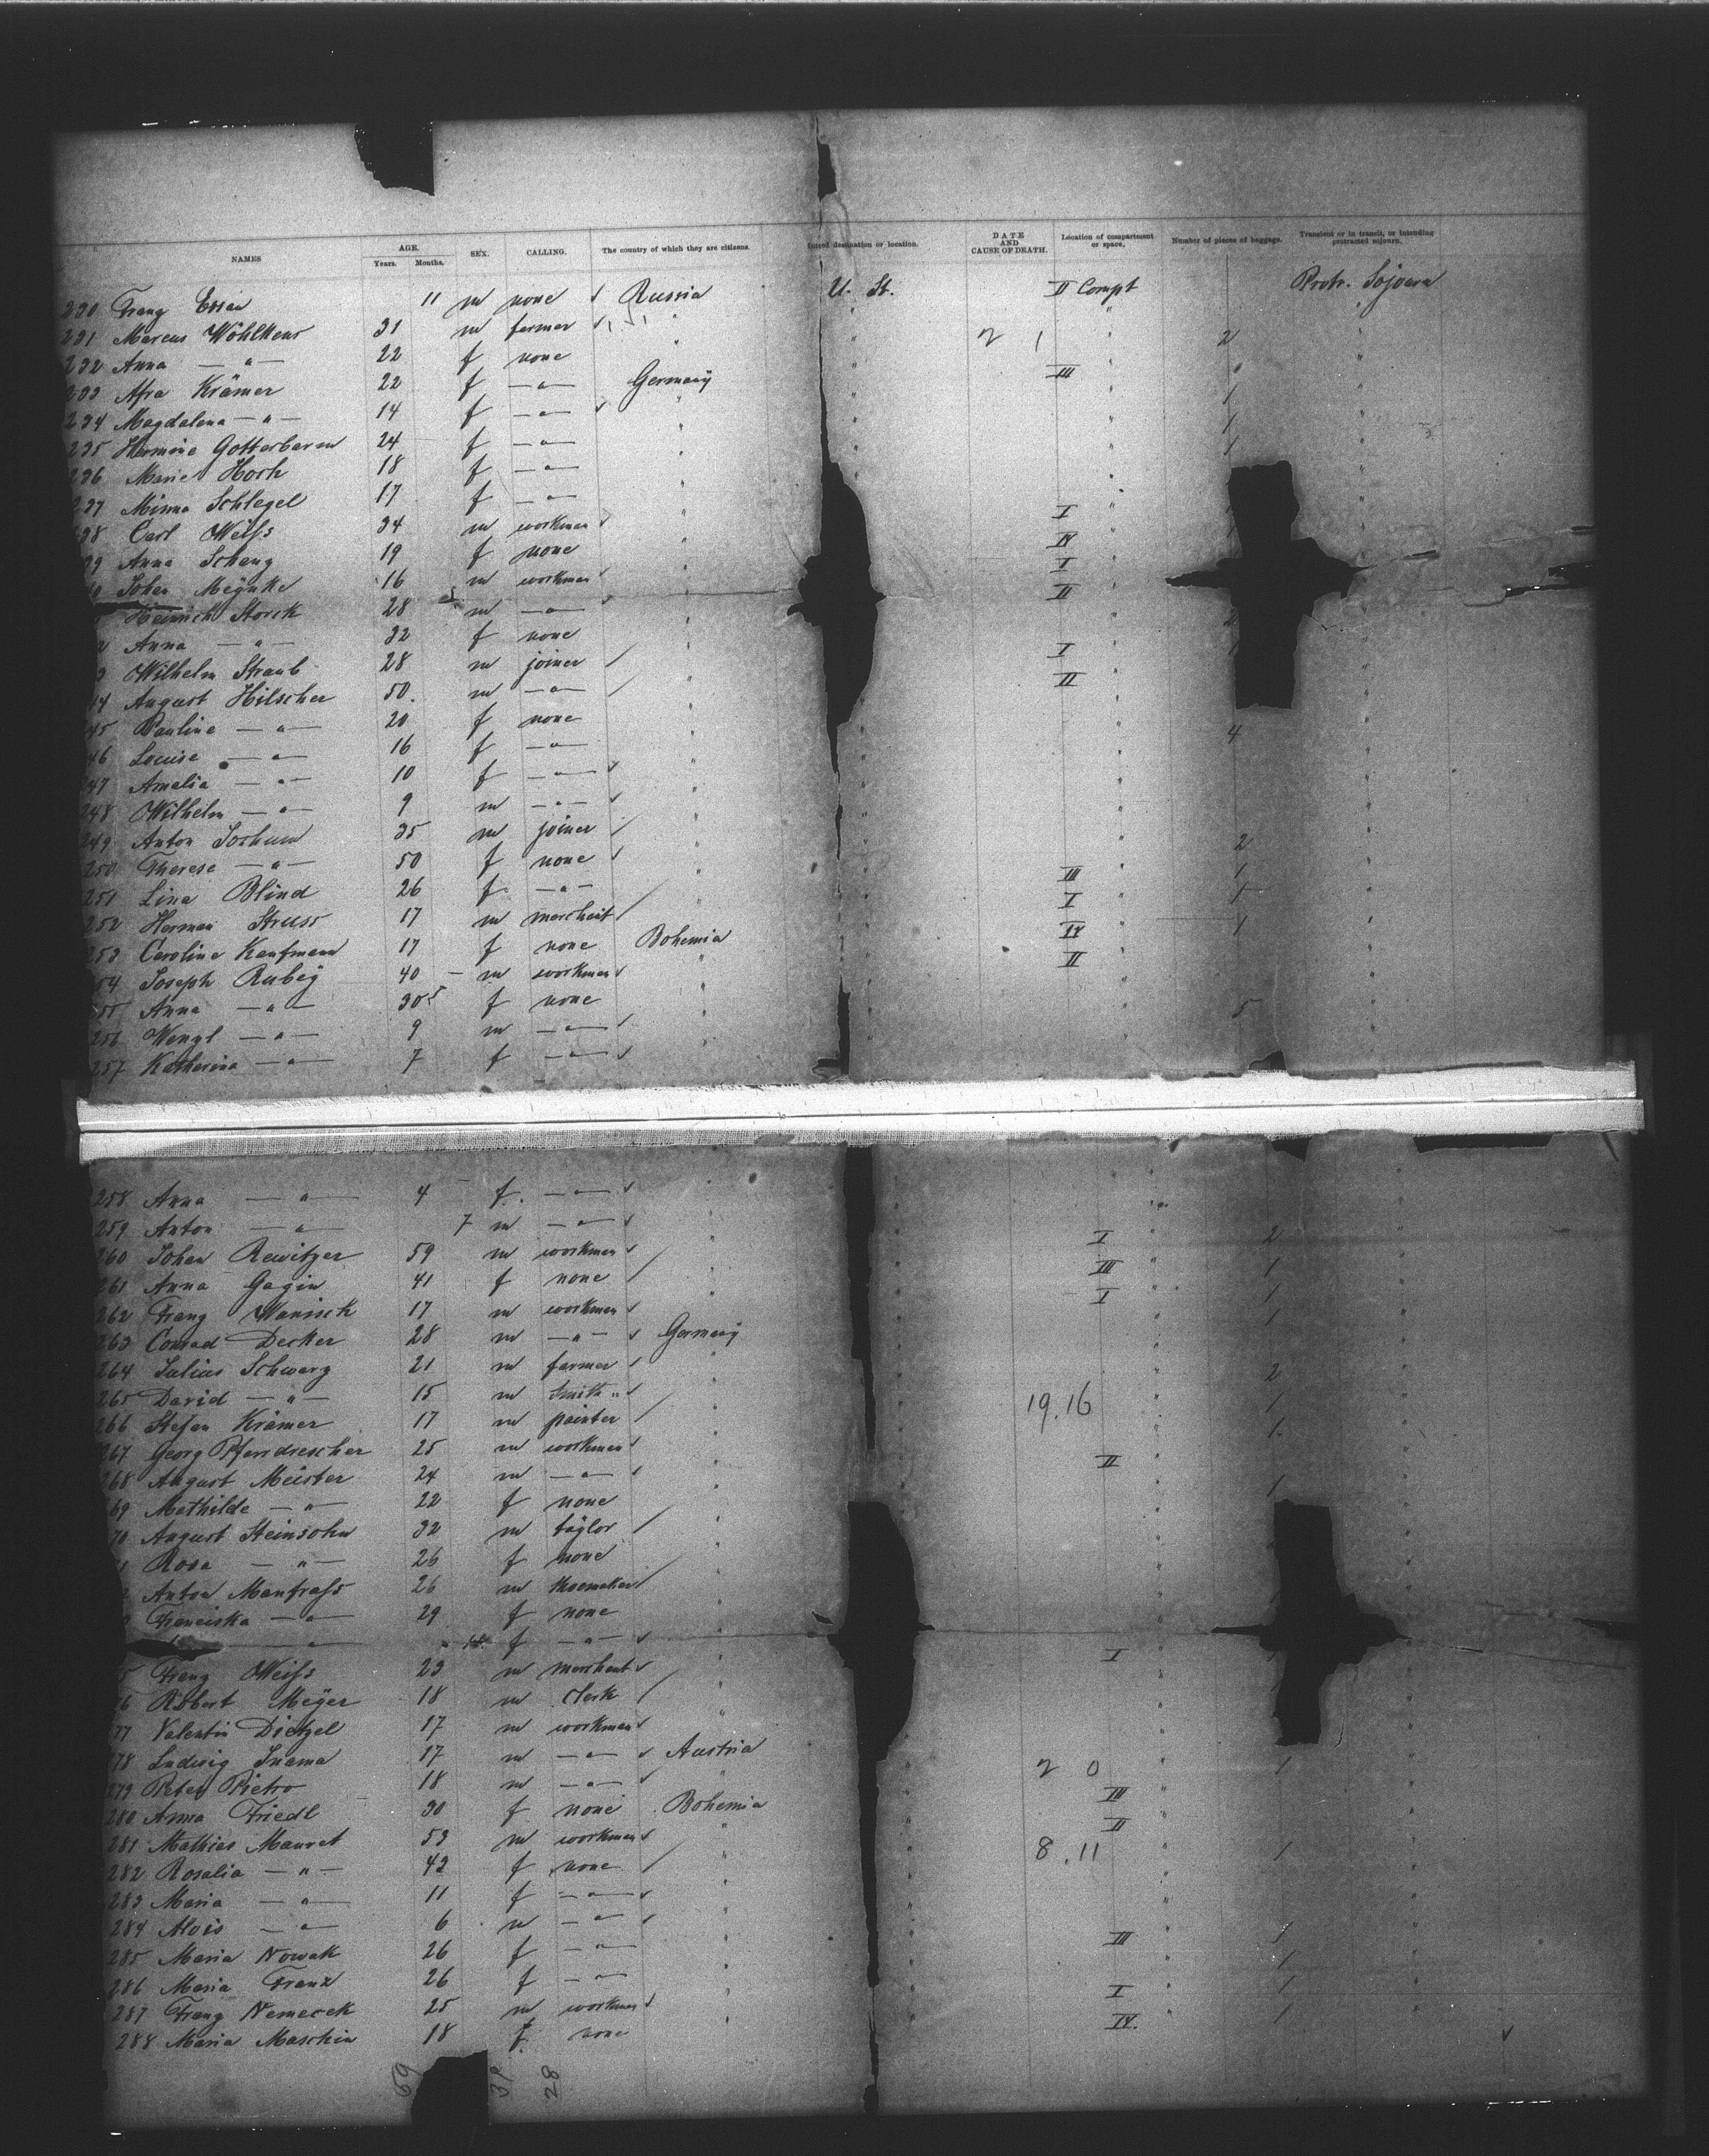 NAMES AGE. Years. Months. SEX. CALLING. The country of which they are citizens. Intend destination or location. DATE AND CAUSE OF DEATH. Location of compartment or space. Number of pieces of baggage. Transient or in transit, or intending protracted sojourn.
230 Franz 11 m none Russia U. St. II Compt Protr. Sojourn
231 Marcus Wöhlkens 31 m farmer " " " "
232 Anna — " — 22 f none " " 2 1 " 2 "
233 Afra Krämer 22 f — " — Germany " III " "
234 Magdalena — " — 14 f — " — " " " 1 "
235 Hermine Gotterbarm 24 f — " — " " " 1 "
236 Marie Horh 18 f — " — " " " 1 "
237 Minna Schlegel 17 f — " — " " "
38 Carl Weiss 34 m workman " I " "
39 Anna Schenz 19 f none " IV " "
Johan Meynke 16 m workman " I " "
Heinrich Storck 28 m — " — " II " "
2 Anna — " — 32 f none " " "
3 Wilhelm Straub 28 m joiner " I " "
44 August Hilscher 50 m — " — " II " "
45 Pauline — " — 20 f none " " " "
46 Louise — " — 16 f — " — " " " 4 "
247 Amalia — " — 10 f — " — " " " "
248 Wilhelm — " — 9 m — " — " " " "
249 Anton Jochum 35 m joiner " " " "
250 Therese — " — 50 f none " " " 2 "
251 Lina Blind 26 f — " — " " III " 1 "
252 Herman Struss 17 m merchant " " I " 1 "
253 Caroline Kaufmann 17 f none Bohemia " IV " 1 "
254 Joseph Rubey 40 m workman " " II " "
255 Anna — " — 30 f none " " " "
256 Wenzl — " — 9 m — " — " " " 5 "
257 Katherina — " — 7 f — " — " " " "
258 Anna — " — 4 f — " — " " "
259 Anton — " — 7 m — " — " " "
260 Johan Rewitzer 59 m workman " " I " 2 "
261 Anna Gagin 41 f none " " III " 1 "
262 Franz Wanisck 17 m workman " " I " 1 "
263 Conrad Decker 28 m — " — Germany " " 1 "
264 Julius Schwarz 21 m farmer " " " "
265 David — " — 15 m Smith " " " 2 "
266 Stefan Krämer 17 m painter " " 19.16 " 1 "
267 Georg Pfendrescher 25 m workman " " " 1 "
268 August Meister 24 m — " — " II " "
69 Mathilde — " — 22 f none " " 1 "
70 August Steinsohn 32 m taylor " " "
Rosa — " — 26 f none " " "
2 Anton Manfrass 26 m shoemaker " " "
Franciska — " — 29 f none " " "
— " — f — " — " "
5 Franz Weiss 23 m merchant " I " "
76 Robert Meyer 18 m clerk " " "
77 Valentin Dietzel 17 m workman " " "
278 Ludwig Inama 17 m — " — Austria " " "
279 Peter Pietro 18 m — " — " " 2 0 " 1 "
280 Anna Friedl 30 f none Bohemia " III " "
281 Mathias Mauret 53 m workman " " II " "
282 Rosalia — " — 42 f none " " 8.11 " 1 "
283 Maria — " — 11 f — " — " " " "
284 Alois — " — 6 m — " — " " " "
285 Maria Nowak 26 f — " — " " III " 1 "
286 Maria Franz 26 f — " — " " " 1 "
287 Franz Nemecek 25 m workman " " I " 1 "
288 Maria Maschin 18 f none " IV. " 1
69 39 28